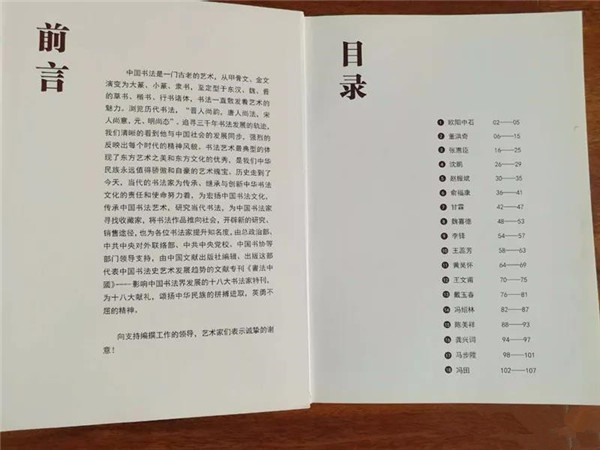 前言
中国书法是一门古老的艺术，从甲骨文、金文
演变为大篆、小篆、隶书，至定型于东汉、魏、晋
的草书、楷书、行书诸体，书法一直散发着艺术的
魅力。浏览历代书法，“晋人尚韵，唐人尚法，宋
人尚意，元、明尚态”。追寻三千年书法发展的轨迹，
我们清晰的看到他与中国社会的发展同步，强烈的
反映出每个时代的精神风貌。书法艺术最典型的体
现了东方艺术之美和东方文化的优秀，是我们中华
民族永远值得骄傲和自豪的艺术瑰宝。历史走到了
今天，当代的书法家为传承、继承与创新中华书法
文化的责任和使命努力着，为宏扬中国书法文化、
传承中国书法艺术，研究当代书法，为中国书法家
寻找收藏家，将书法作品推向社会，开辟新的研究、
销售途径，也为各位书法家提升知名度，由总政治部、
中共中央对外联络部、中共中央党校、中国书协等
部门领导支持，由中国文献出版社编辑、出版这部
代表中国书法史艺术发展趋势的文献专刊《書法中
國》——影响中国书法界发展的十八大书法家特刊，
为十八大献礼，颂扬中华民族的拼搏进取，英勇不
屈的精神。
向支持编撰工作的领导，艺术家们表示诚挚的谢
意！
目录
1 欧阳中石 02——05
2 董洪奇 06——15
3 张惠臣 16——25
4 沈鹏 26——29
5 赵振斌 30——35
6 俞福康 36——41
7 甘霖 42——47
8 魏喜德 48——53
9 李铎 54——57
10 王蕊芳 58——63
11 黄吴怀 64——69
12 王文甫 70——75
13 戴玉春 76——81
14 冯绍林 82——87
15 陈美祥 88——93
16 龚兴词 94——97
17 马步陞 98——101
18 冯田 102——107